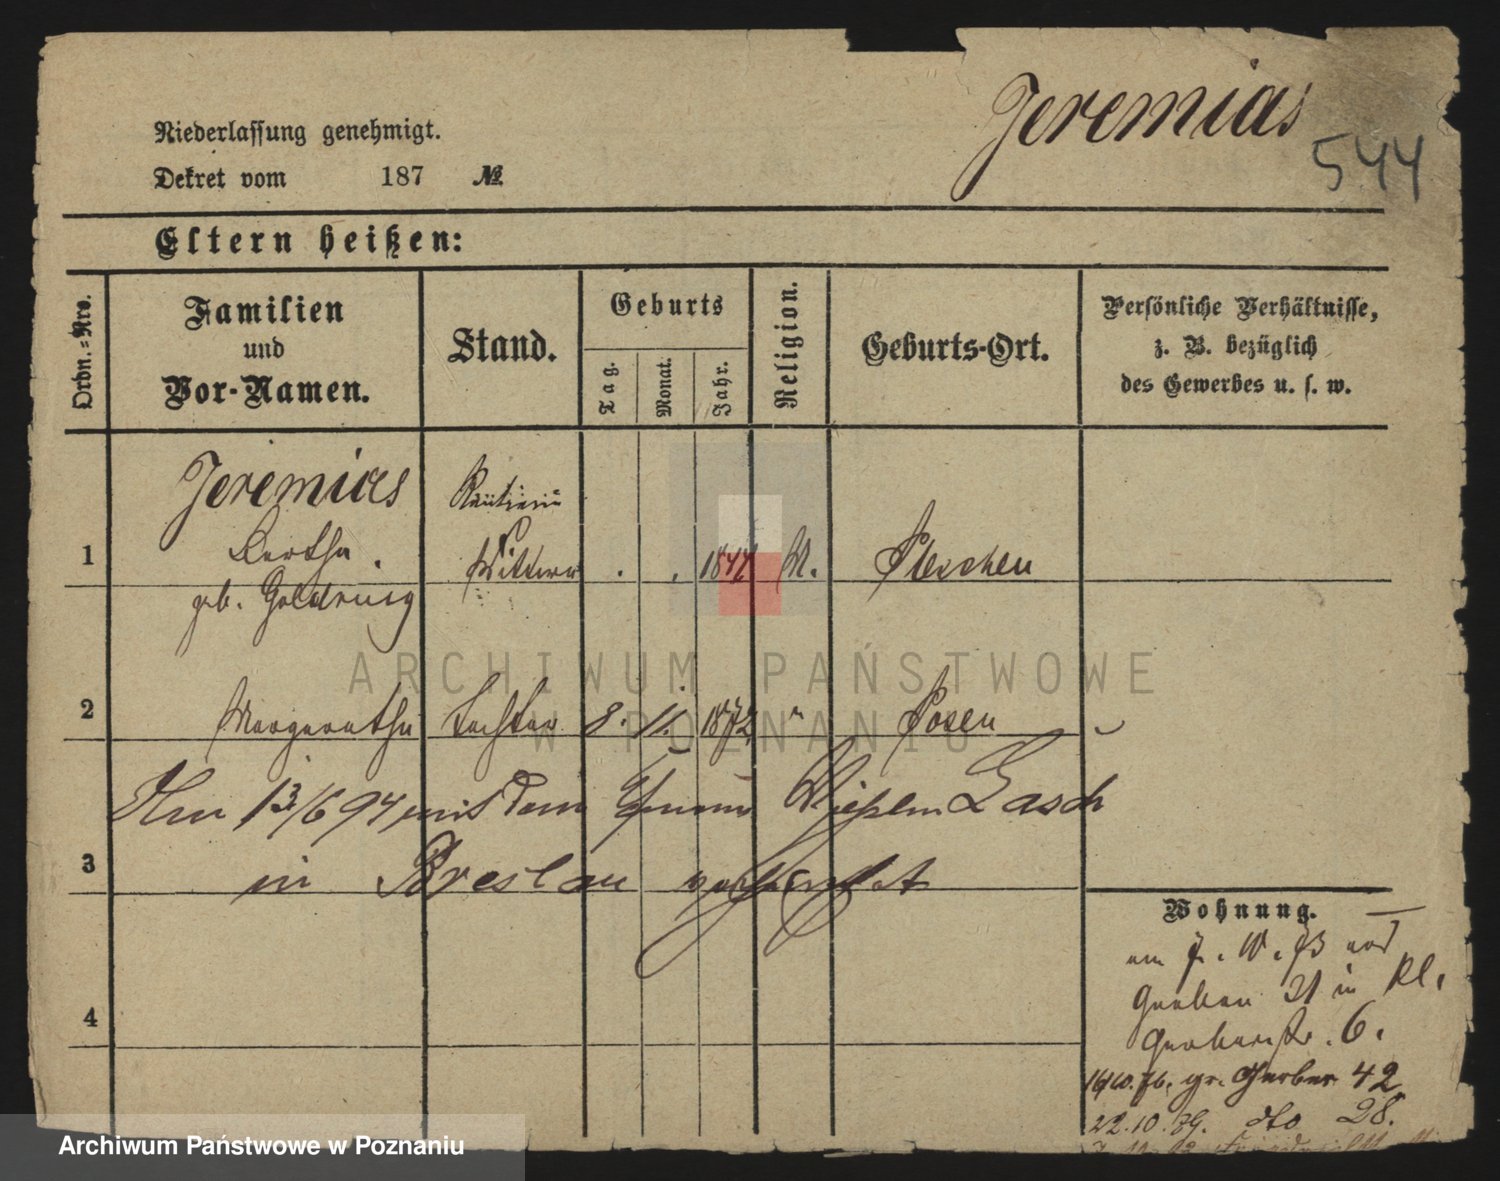 Jeremias
544
Niederlassung genehmigt.
Dekret vom 187 №
Eltern heißen:
Ordn.-Nro.
Familien
und
Vor-Namen.
Stand.
Geburts
Tag.
Monat.
Jahr.
Religion.
Geburts-Ort.
Persönliche Verhältnisse,
z. B. bezüglich
des Gewerbes u. s. w.
Jeremias
1 Bertha Wittwe 1847 M. Pleschen
geb. Goldring
2 Margaretha Tochter 8. 11. 1872 " Posen
Am 13/6 94 mit dem Lasch
3 in Breslau verheirathet
Wohnung.
am 7. 10. 73 von
Graben 21 in kl.
Gerberstr. 6.
16/10. 76. gr. Gerber 42
4
22.10.79. dto 28.
ARCHIWUM PAŃSTWOWE
W POZNANIU
Archiwum Państwowe w Poznaniu